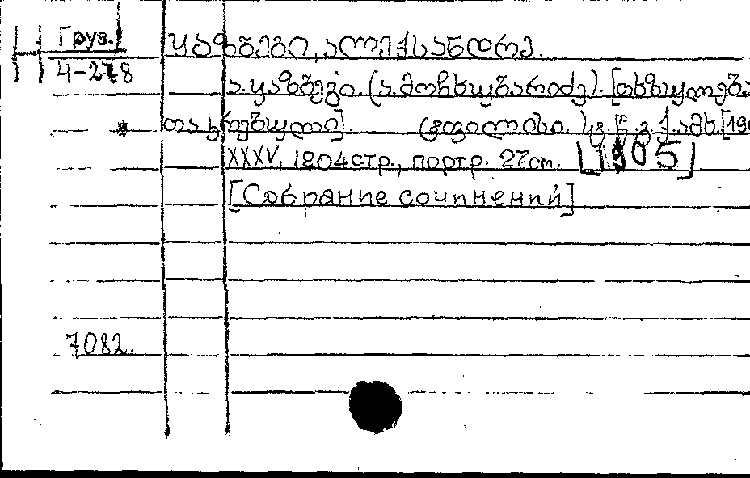 Груз.
4-278
ყაზბეგი, ალექსანდრე.
ა. ყაზბეგი. (ა. მოჩხუბარიძე). [თხზულება
თა კრებული]. ტფილისი.
XXXV, 1204 стр., портр. 27 cm. [1905]
[Собрание сочинений]
7082.